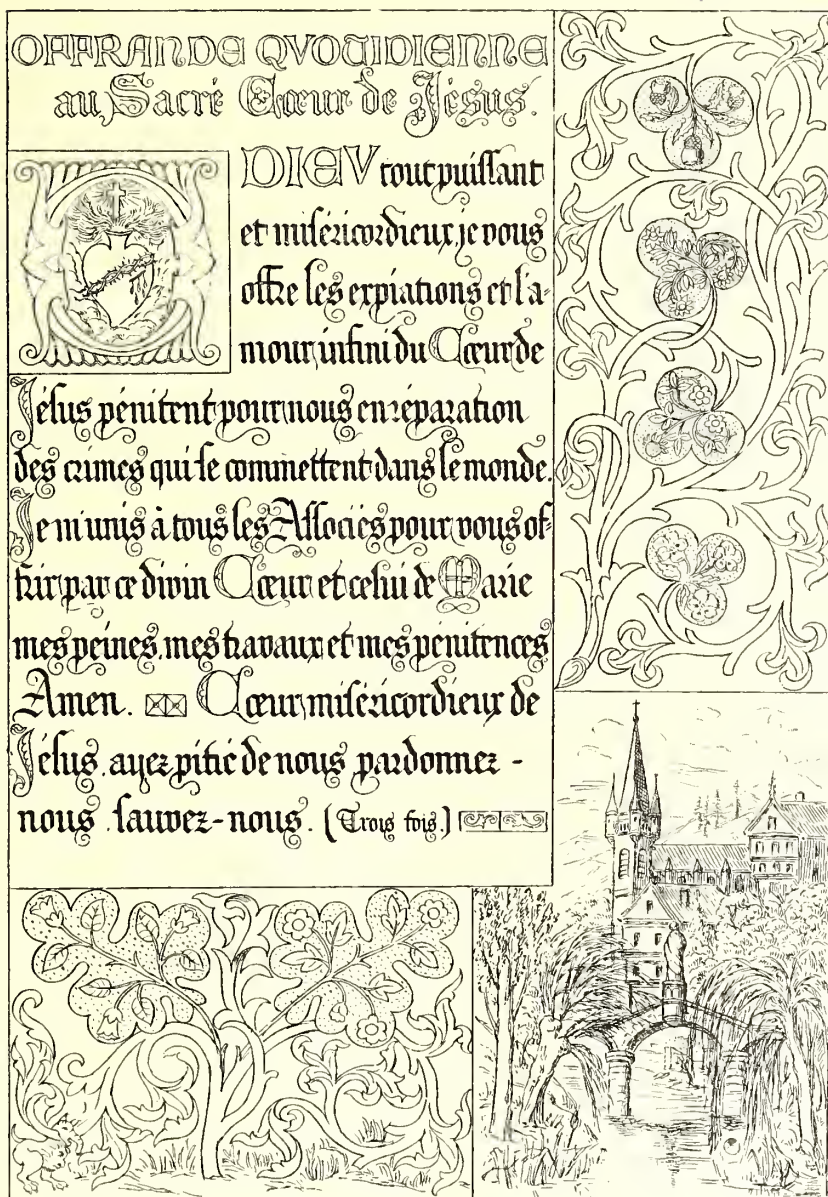 OFFRANDE QVOTIDIENNE
au Sacré Cœur de Jésus.
O DIEV tout puiſſant
et miſéricordieux, je vous
offre les expiations et l'a-
mour infini du Cœur de
Jéſus pénitent pour nous en réparation
des crimes qui ſe commettent dans le monde.
Je m'unis à tous les Aſſociés pour vous of-
frir par ce divin Cœur et celui de Marie
mes peines, mes travaux et mes pénitences
Amen. Cœur miſéricordieux de
Jéſus, ayez pitié de nous pardonnez -
nous, ſauvez-nous. (Trois fois.)